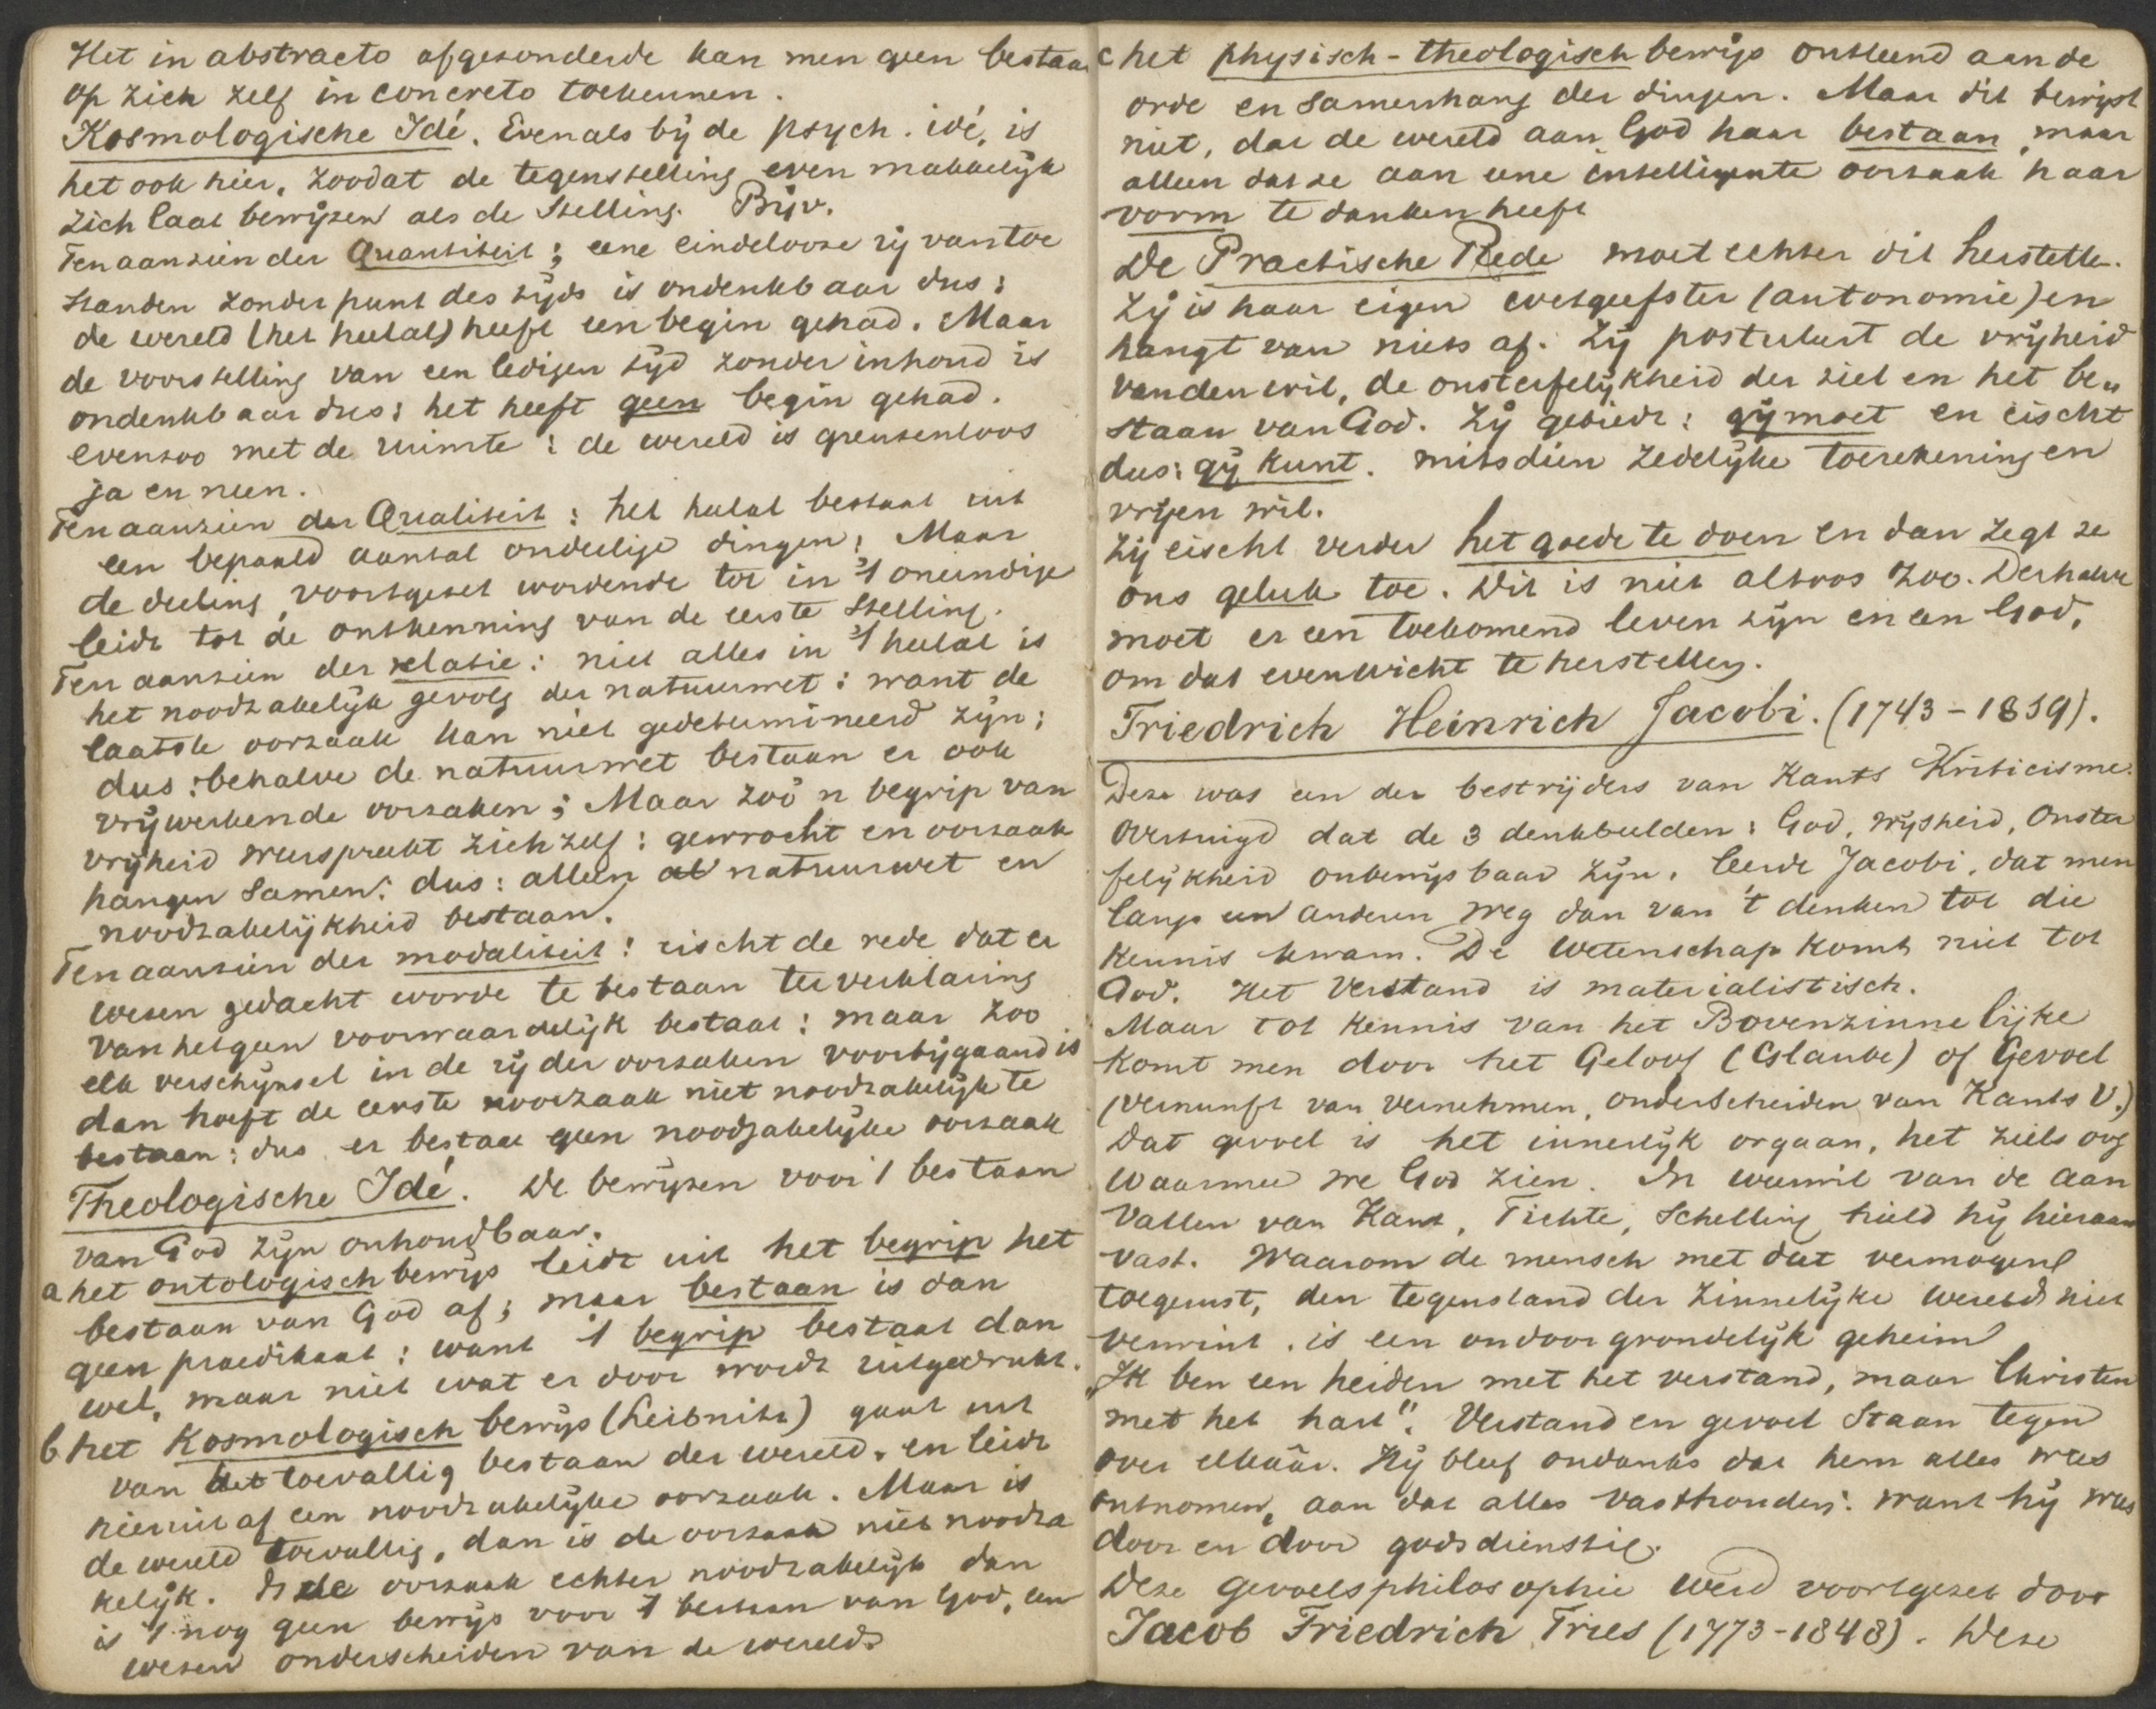 Het in abstracto afgezonderde kan men geen bestaan
op zich zelf in concreto toekennen.
Kosmologische Idé. Evenals bij de psych. idé, is
het ook hier, zoodat de tegenstelling even makkelijk
zich laat bewijzen als de Stelling. Bijv.
Ten aanzien der Quantiteit; eene eindelooze rij van toe
standen zonder punt des tijds is ondenkbaar dus:
de wereld (het heelal) heeft een begin gehad. Maar
de voorstelling van een ledigen tijd zonder inhoud is
ondenkbaar dus: het heeft geen begin gehad.
evenzoo met de ruimte: de wereld is grenzenloos
ja en neen.
Ten aanzien der Qualiteit: het heelal bestaat uit
een bepaald aantal ondeelige dingen; Maar
de deeling, voortgezet wordende tot in 't oneindige
leidt tot de ontkenning van de eerste Stelling.
Ten aanzien der relatie: niet alles in 't heelal is
het noodzakelijk gevolg der natuurwet: want de
laatste oorzaak kan niet gedetermineerd zijn;
dus: behalve de natuurwet bestaan er ook
vrijwerkende oorzaken; Maar zoo'n begrip van
vrijheid weerspreekt zichzelf: gewrocht en oorzaak
hangen samen: dus: alleen al natuurwet en
noodzakelijkheid bestaan.
Ten aanzien der modaliteit: eischt de rede dat er
wezen gedacht worde te bestaan ter verklaring
van hetgeen voorwaardelijk bestaat: maar zoo
elk verschijnsel in de rij der oorzaken voorbijgaand is
dan hoeft de eerste oorzaak niet noodzakelijk te
bestaan: dus er bestaat geen noodzakelijke oorzaak
Theologische Idé. De bewijzen voor 't bestaan
van God zijn onhoudbaar.
a het ontologisch bewijs leidt uit het begrip het
bestaan van God af; maar bestaan is dan
geen praedikaat: want 't begrip bestaat dan
wel, maar niet wat er door wordt uitgedrukt.
b het Kosmologisch bewijs (Leibnitz) gaat uit
van het toevallig bestaan der wereld, en leidt
hieruit af een noodzakelijke oorzaak. Maar is
de wereld toevallig, dan is de oorzaak niet noodza
kelijk. Is de oorzaak echter noodzakelijk dan
is 't nog geen bewijs voor 't bestaan van God, een
wezen onderscheiden van de wereld.
c het physisch-theologisch bewijs ontleend aan de
orde en samenhang der dingen. Maar dit bewijst
niet, dat de wereld aan God haar bestaan, maar
alleen dat ze aan eene intelligente oorzaak haar
vorm te danken heeft
De Practische Rede moet echter dit herstellen.
Zij is haar eigen wetgeefster (autonomie) en
hangt van niets af. Zij postuleert de vrijheid
van den wil, de onsterfelijkheid der ziel en het be„
staan van God. Zij gebiedt: gij moet en eischt
dus: gij kunt. mitsdien zedelijke toerekening en
vrijen wil.
Zij eischt verder het goede te doen en dan zegt ze
ons geluk toe. Dit is niet altoos zoo. Derhalve
moet er een toekomend leven zijn en een God,
om dat evenwicht te herstellen.
Friedrich Heinrich Jacobi. (1743-1819).
Deze was een der bestrijders van Kants Kriticisme.
Overtuigd dat de 3 denkbeelden: God, vrijheid, Onster
felijkheid onbewijsbaar zijn, leerde Jacobi, dat men
langs een anderen weg dan van 't denken tot die
kennis kwam. De wetenschap komt niet tot
God. Het Verstand is materialistisch.
Maar tot kennis van het Bovenzinnelijke
komt men door het Geloof (Glaube) of Gevoel
(vernunft van vernehmen, onderscheiden van Kants V.)
Dat gevoel is het innerlijk orgaan, het ziels oog
waarmee we God zien. In weerwil van de aan
vallen van Kant, Fichte, Schelling hield hij hieraan
vast. Waarom de mensch met dat vermogen
toegerust, den tegenstand der zinnelijke wereld niet
verwint, is een ondoorgrondelijk geheim
„Ik ben een heiden met het verstand, maar Christen
met het hart". Verstand en gevoel staan tegen
over elkaâr. Hij bleef ondanks dat hem alles was
ontnomen, aan dat alles vasthouden: want hij was
door en door godsdienstig.
Deze gevoelsphilosophie werd voortgezet door
Jacob Friedrich Fries (1773-1848). Deze